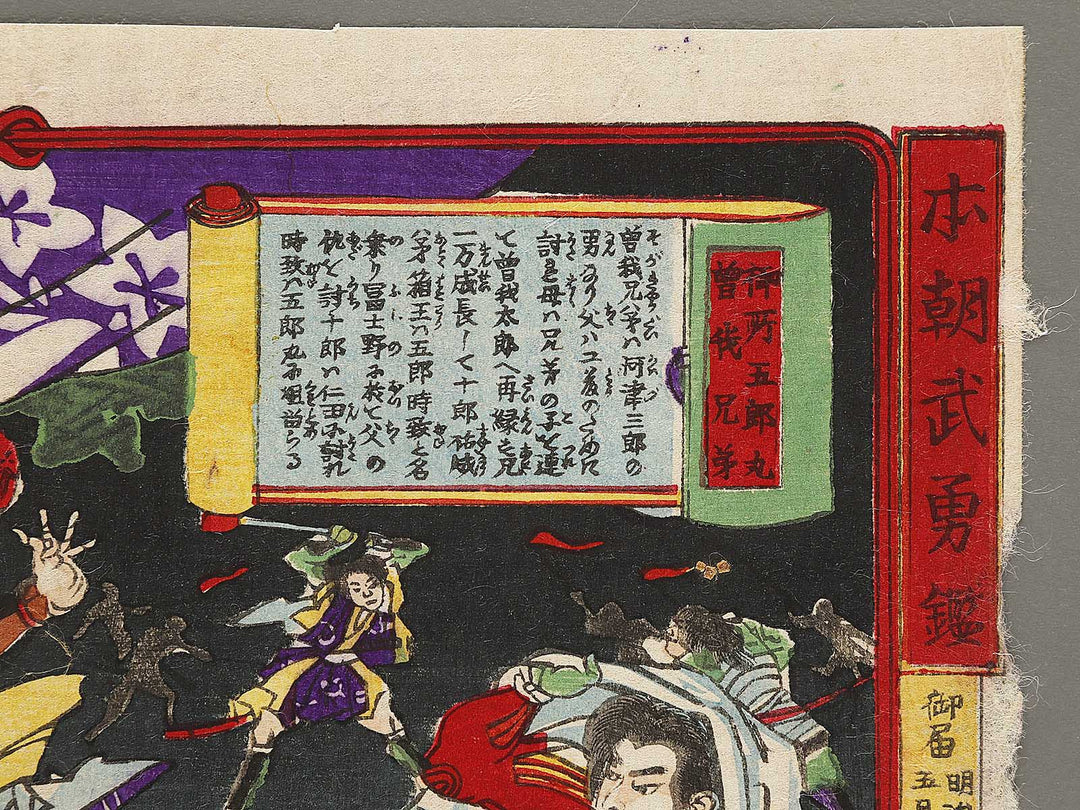 本朝武勇鑑
御届
明
五
御所五郎丸
曽我兄弟
曽我兄弟ハ河津三郎の
男なり父ハ工藤のために
討る母ハ兄弟の子を連
て曽我太郎へ再縁し兄
一万成長して十郎祐成
弟箱王ハ五郎時致と名
乗り冨士野に於て父の
仇を討十郎ハ仁田に討れ
時致ハ五郎丸に組留らる